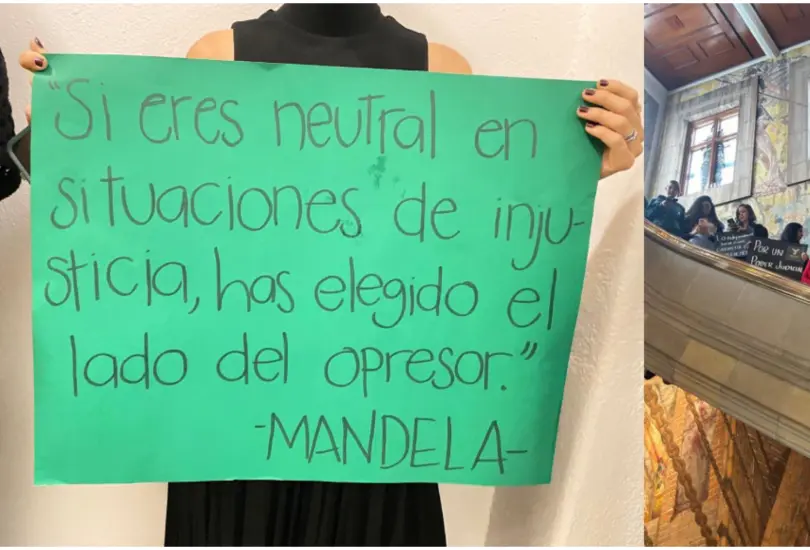 "Si eres neutral en
situaciones de inju-
sticia, has elegido el
lado del opresor."
-MANDELA-
POR UN
PODER JUDICIAL